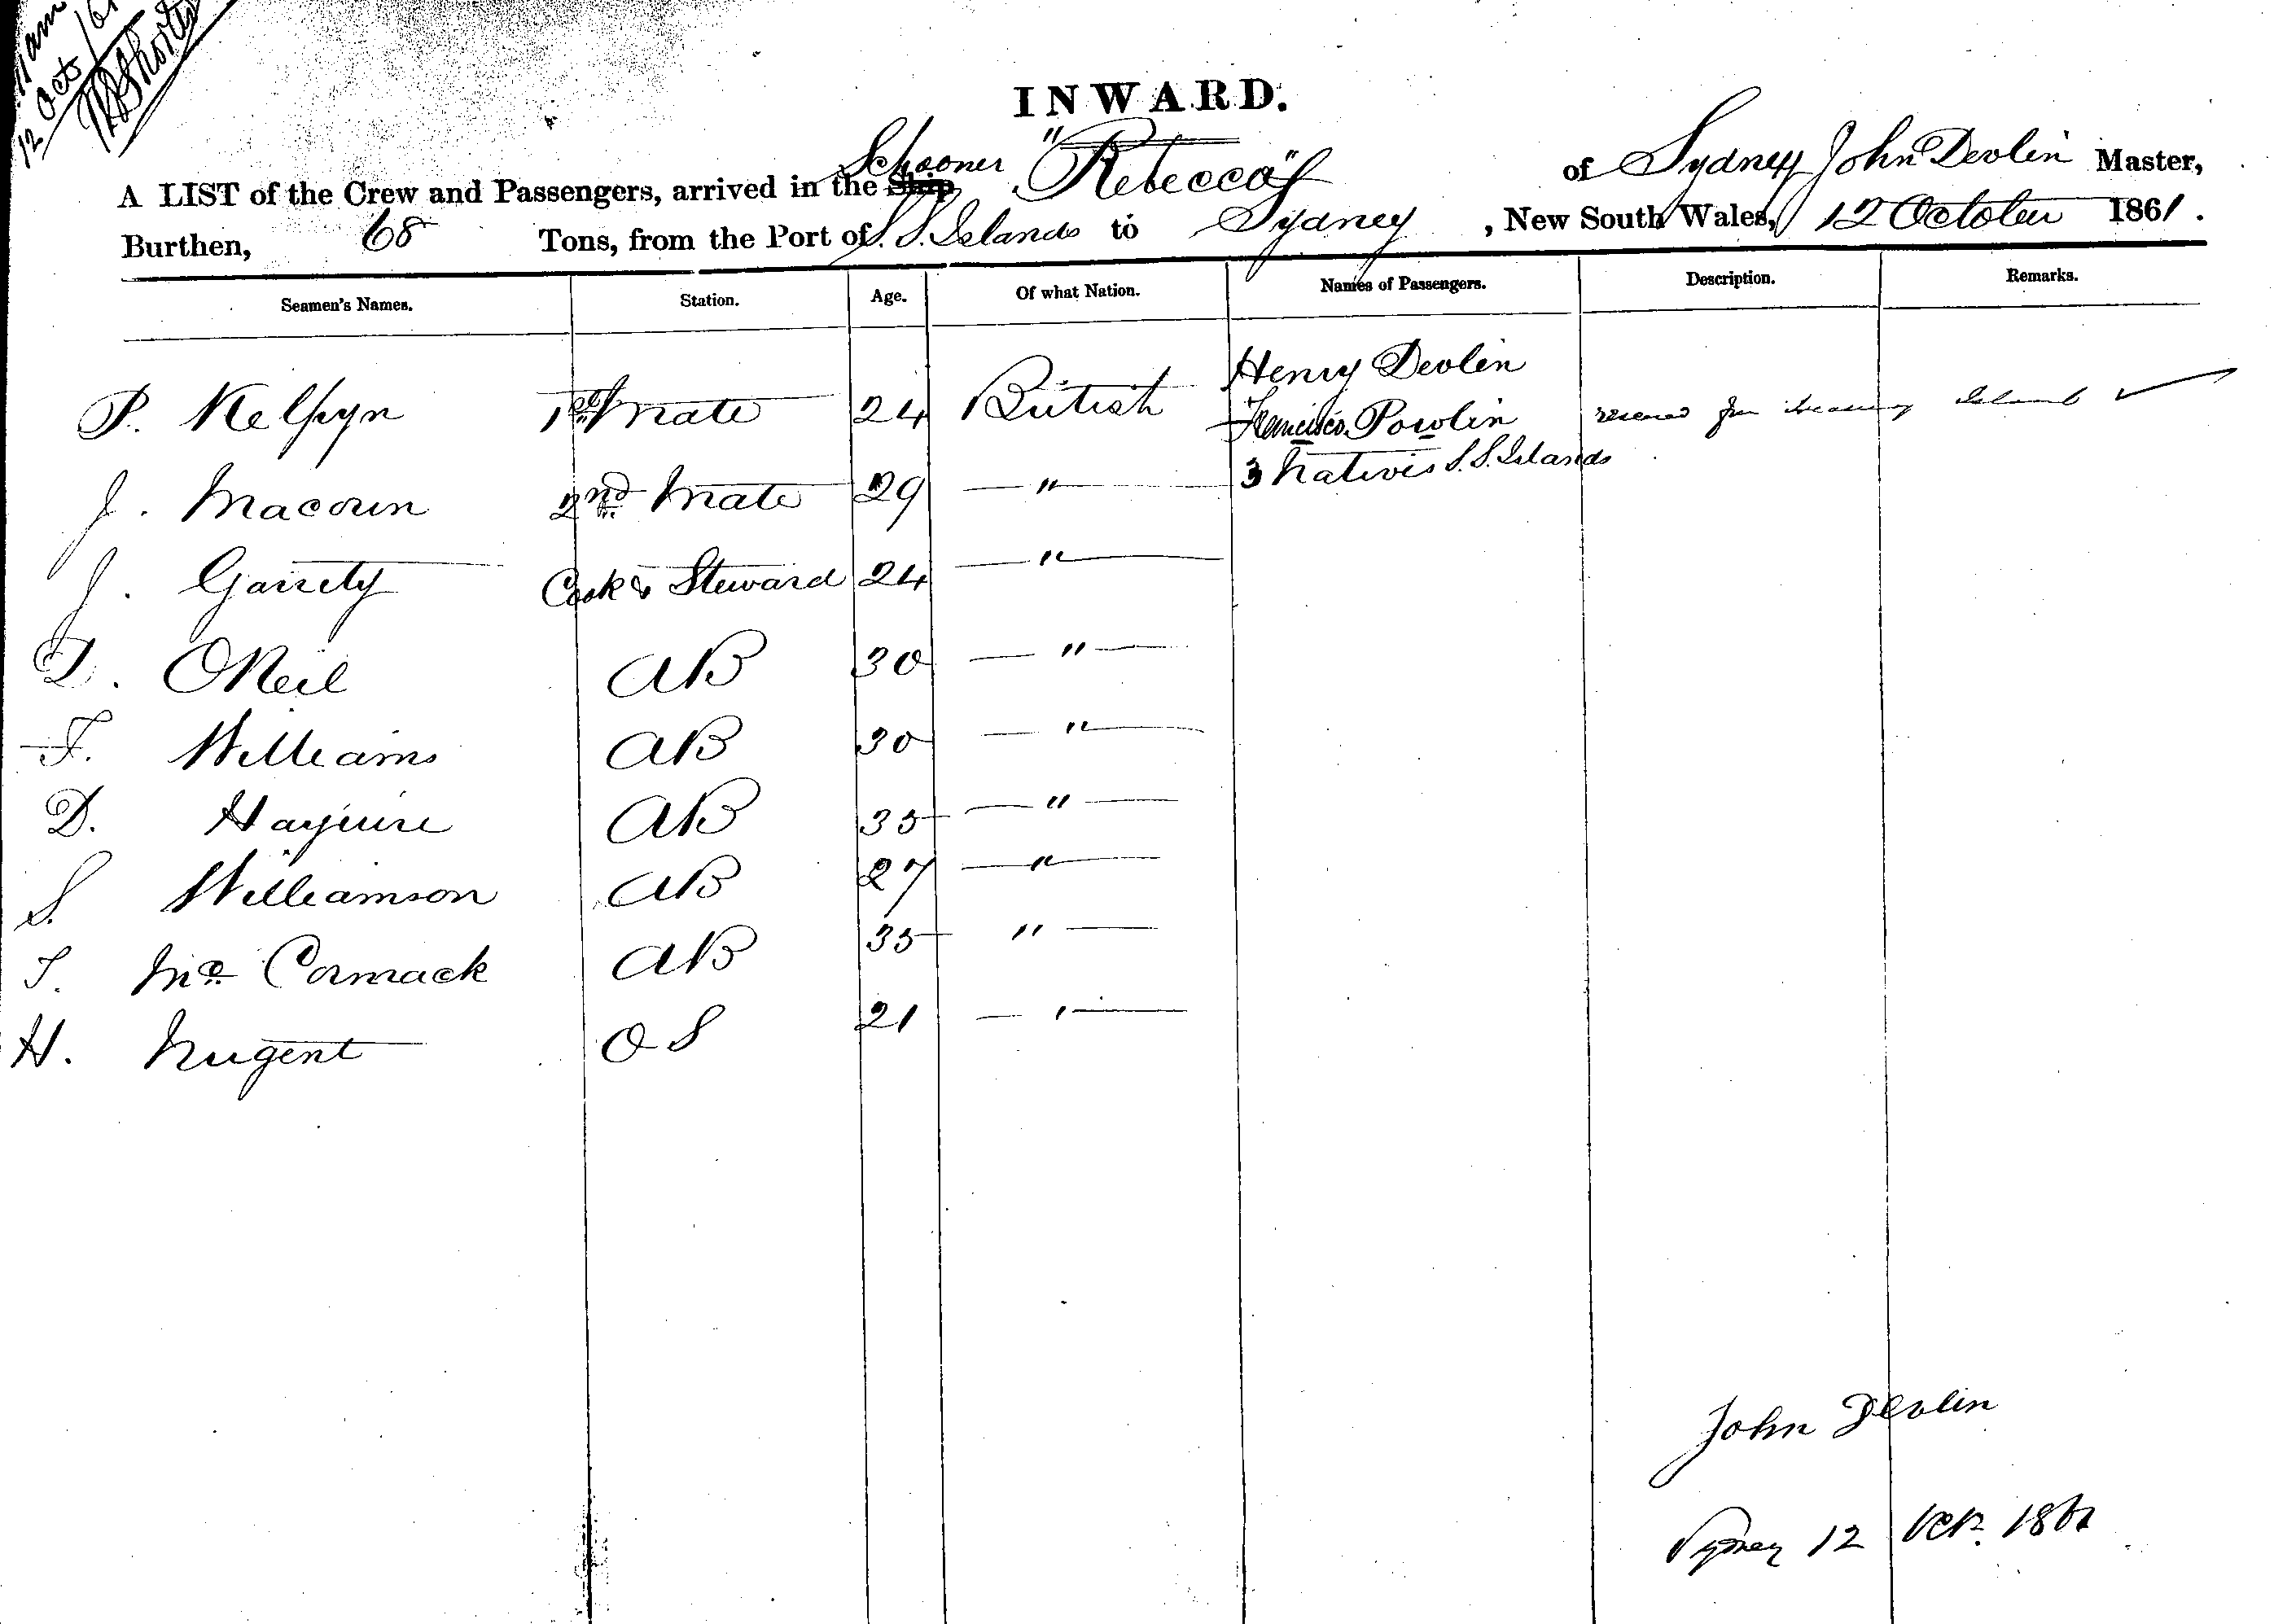 12 Octr /61
INWARD.
A LIST of the Crew and Passengers, arrived in the Ship Schooner "Rebecca" of Sydney John Devlin Master,
Burthen, 68 Tons, from the Port of S. S. Islands to Sydney, New South Wales, 12 October 1861.
Seamen's Names. Station. Age. Of what Nation. Names of Passengers. Description. Remarks.
Henry Devlin
P. Kelsyn 1st Mate 24 British Francisco Powlin rescued from Treasury Island ✓
3 Natives S. S. Islands
J. Macoun 2nd Mate 29 — " —
J. Garrety Cook & Steward 24 — " —
D. ONeil AB 30 — " —
F. Williams AB 30 — " —
D. Haquire AB 35 — " —
S. Williamson AB 27 — " —
T. Mc Cormack AB 35 " —
H. Nugent OS 21 — " —
John Devlin
Sydney 12 Octr. 1861